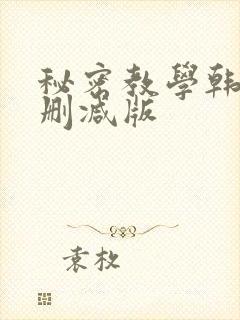 秘密教學韩
删减版
袁枚